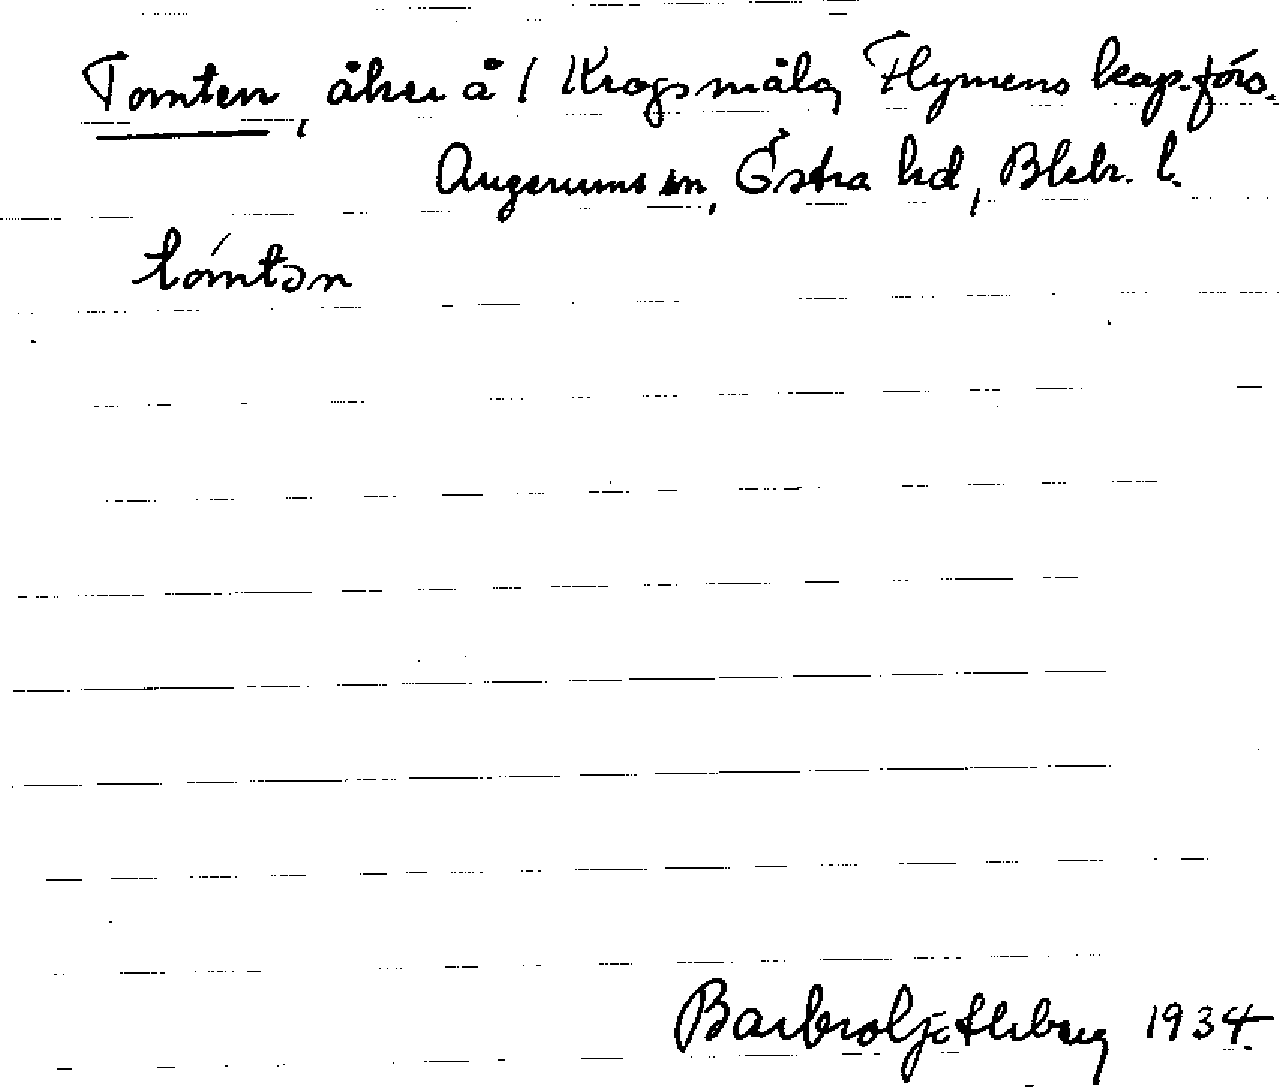 Tomten, åker å 1 Krogsmåla, Flymens kap.förs.
Augerums sn, Östra hd, Blek. l.
tómtən
1934.